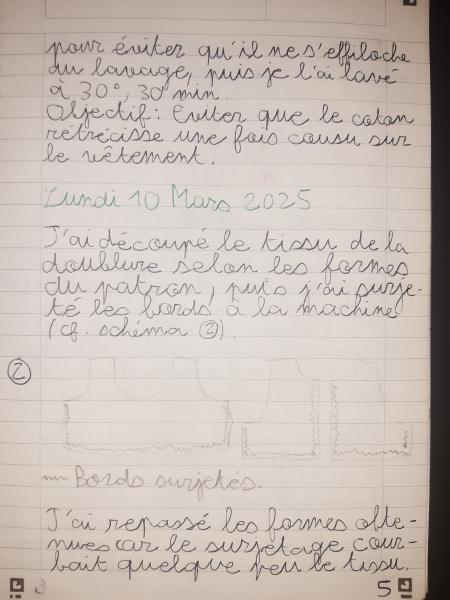 pour éviter qu'il ne s'effiloche
au lavage, puis je l'ai lavé
à 30°, 30 min.
Objectif: Eviter que le coton
rétrécisse une fois cousu sur
le vêtement.
Lundi 10 Mars 2025
J'ai découpé le tissu de la
doublure selon les formes
du patron, puis j'ai surje-
té les bords à la machine
(cf. schéma ②).
②
Bords surjetés.
J'ai repassé les formes obte-
nues car le surjetage cour-
bait quelque peu le tissu.
5